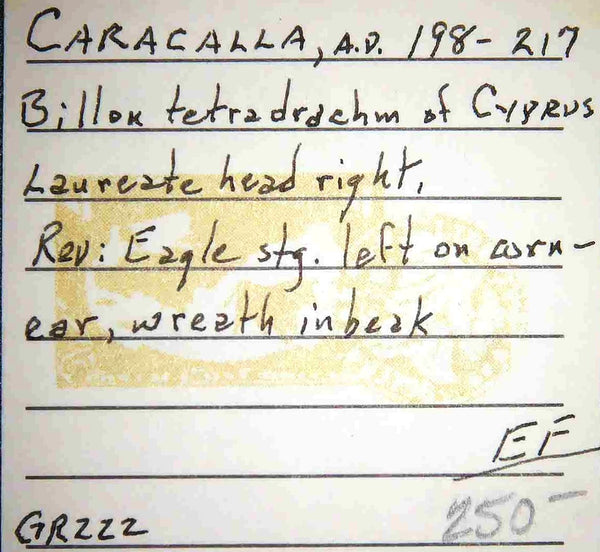 CARACALLA, A.D. 198-217
Billon tetradrachm of CYPRUS
Laureate head right.
Rev: Eagle stg. left on corn-
ear, wreath in beak
EF
250-
GR222